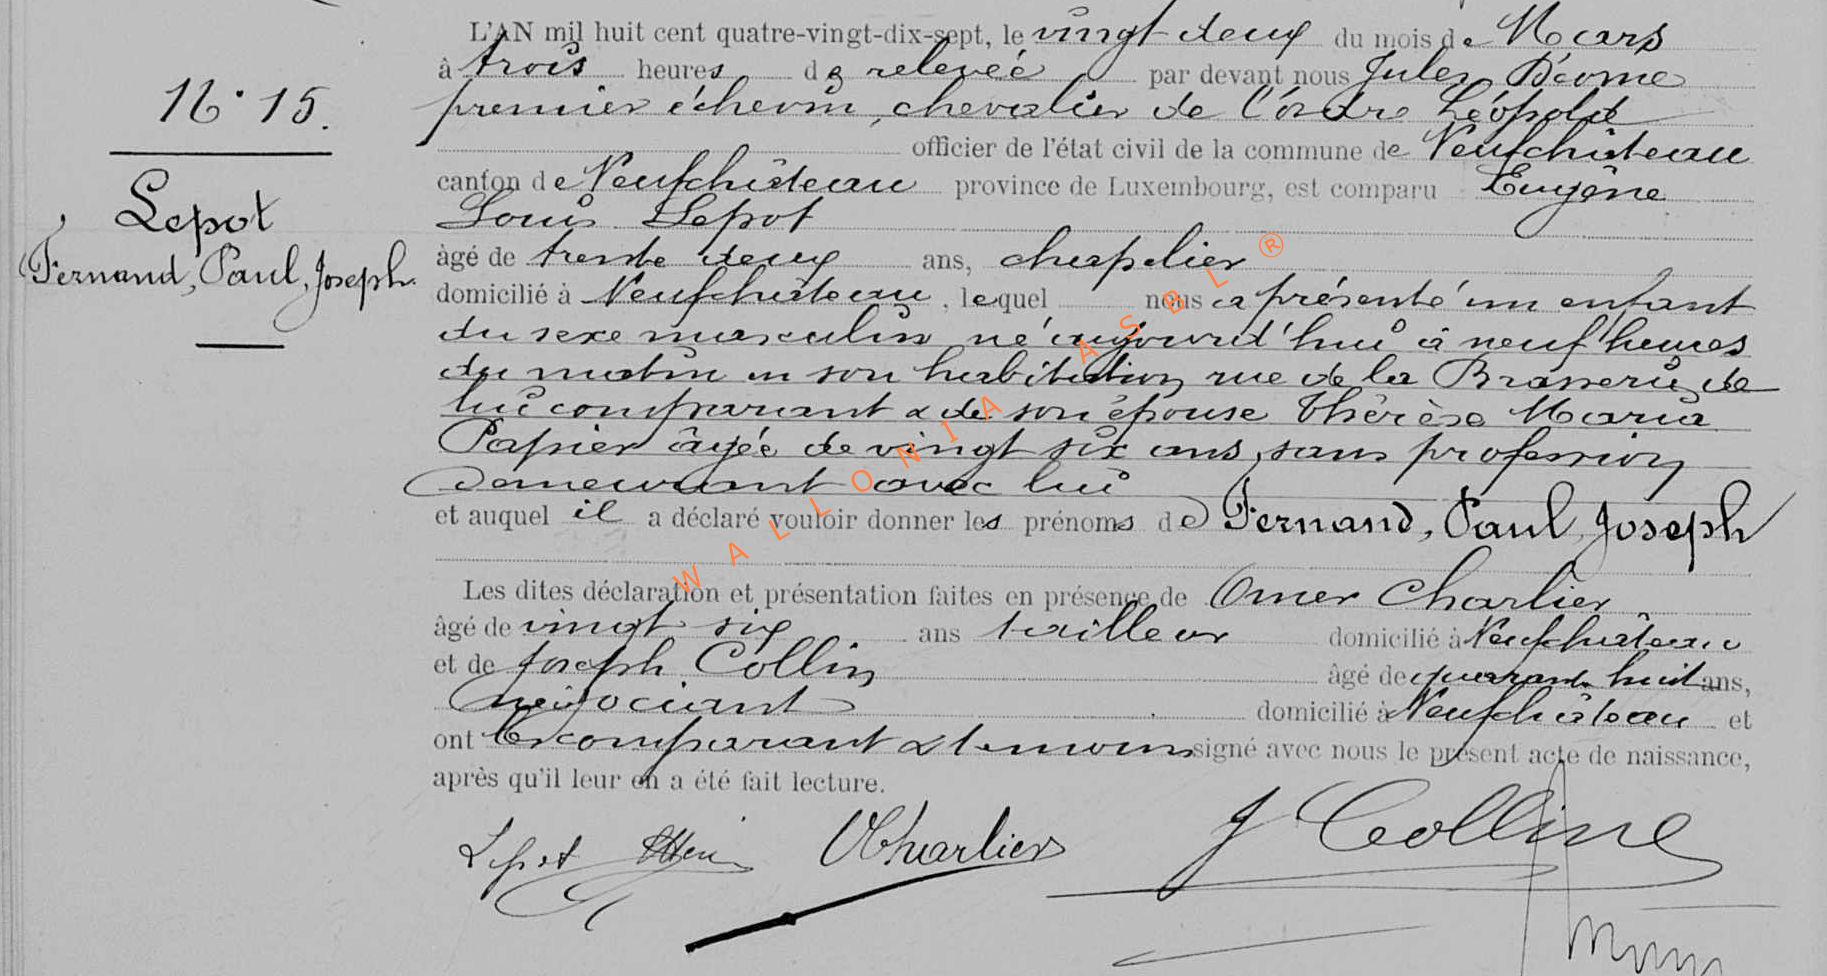 L'AN mil huit cent quatre-vingt-dix-sept, le vingt deux du mois de Mars
à trois heures de relevée par devant nous Jules
N° 15.
premier échevin, chevalier de l'ordre Léopold
officier de l'état civil de la commune de Neufchâteau
canton de Neufchâteau province de Luxembourg, est comparu Eugène
Lepot
Louis Lepot
Fernand, Paul, Joseph.
âgé de trente deux ans, chapelier
domicilié à Neufchâteau, lequel nous a présenté un enfant
du sexe masculin né aujourd'hui à neuf heures
du matin en son habitation rue de la Brasserie, de
lui comparant & de son épouse Thérèse Maria
Papier âgée de vingt six ans, sans profession
demeurant avec lui
et auquel il a déclaré vouloir donner les prénoms de Fernand, Paul, Joseph
Les dites déclaration et présentation faites en présence de Omer Charlier
âgé de vingt six ans tailleur domicilié à Neufchâteau
et de Joseph Collin âgé de quarante huit ans,
négociant domicilié à Neufchâteau et
ont les comparant & temoins signé avec nous le présent acte de naissance,
après qu'il leur en a été fait lecture.
Lepot OCharlier J Colline
WALLONIA ASBL ®